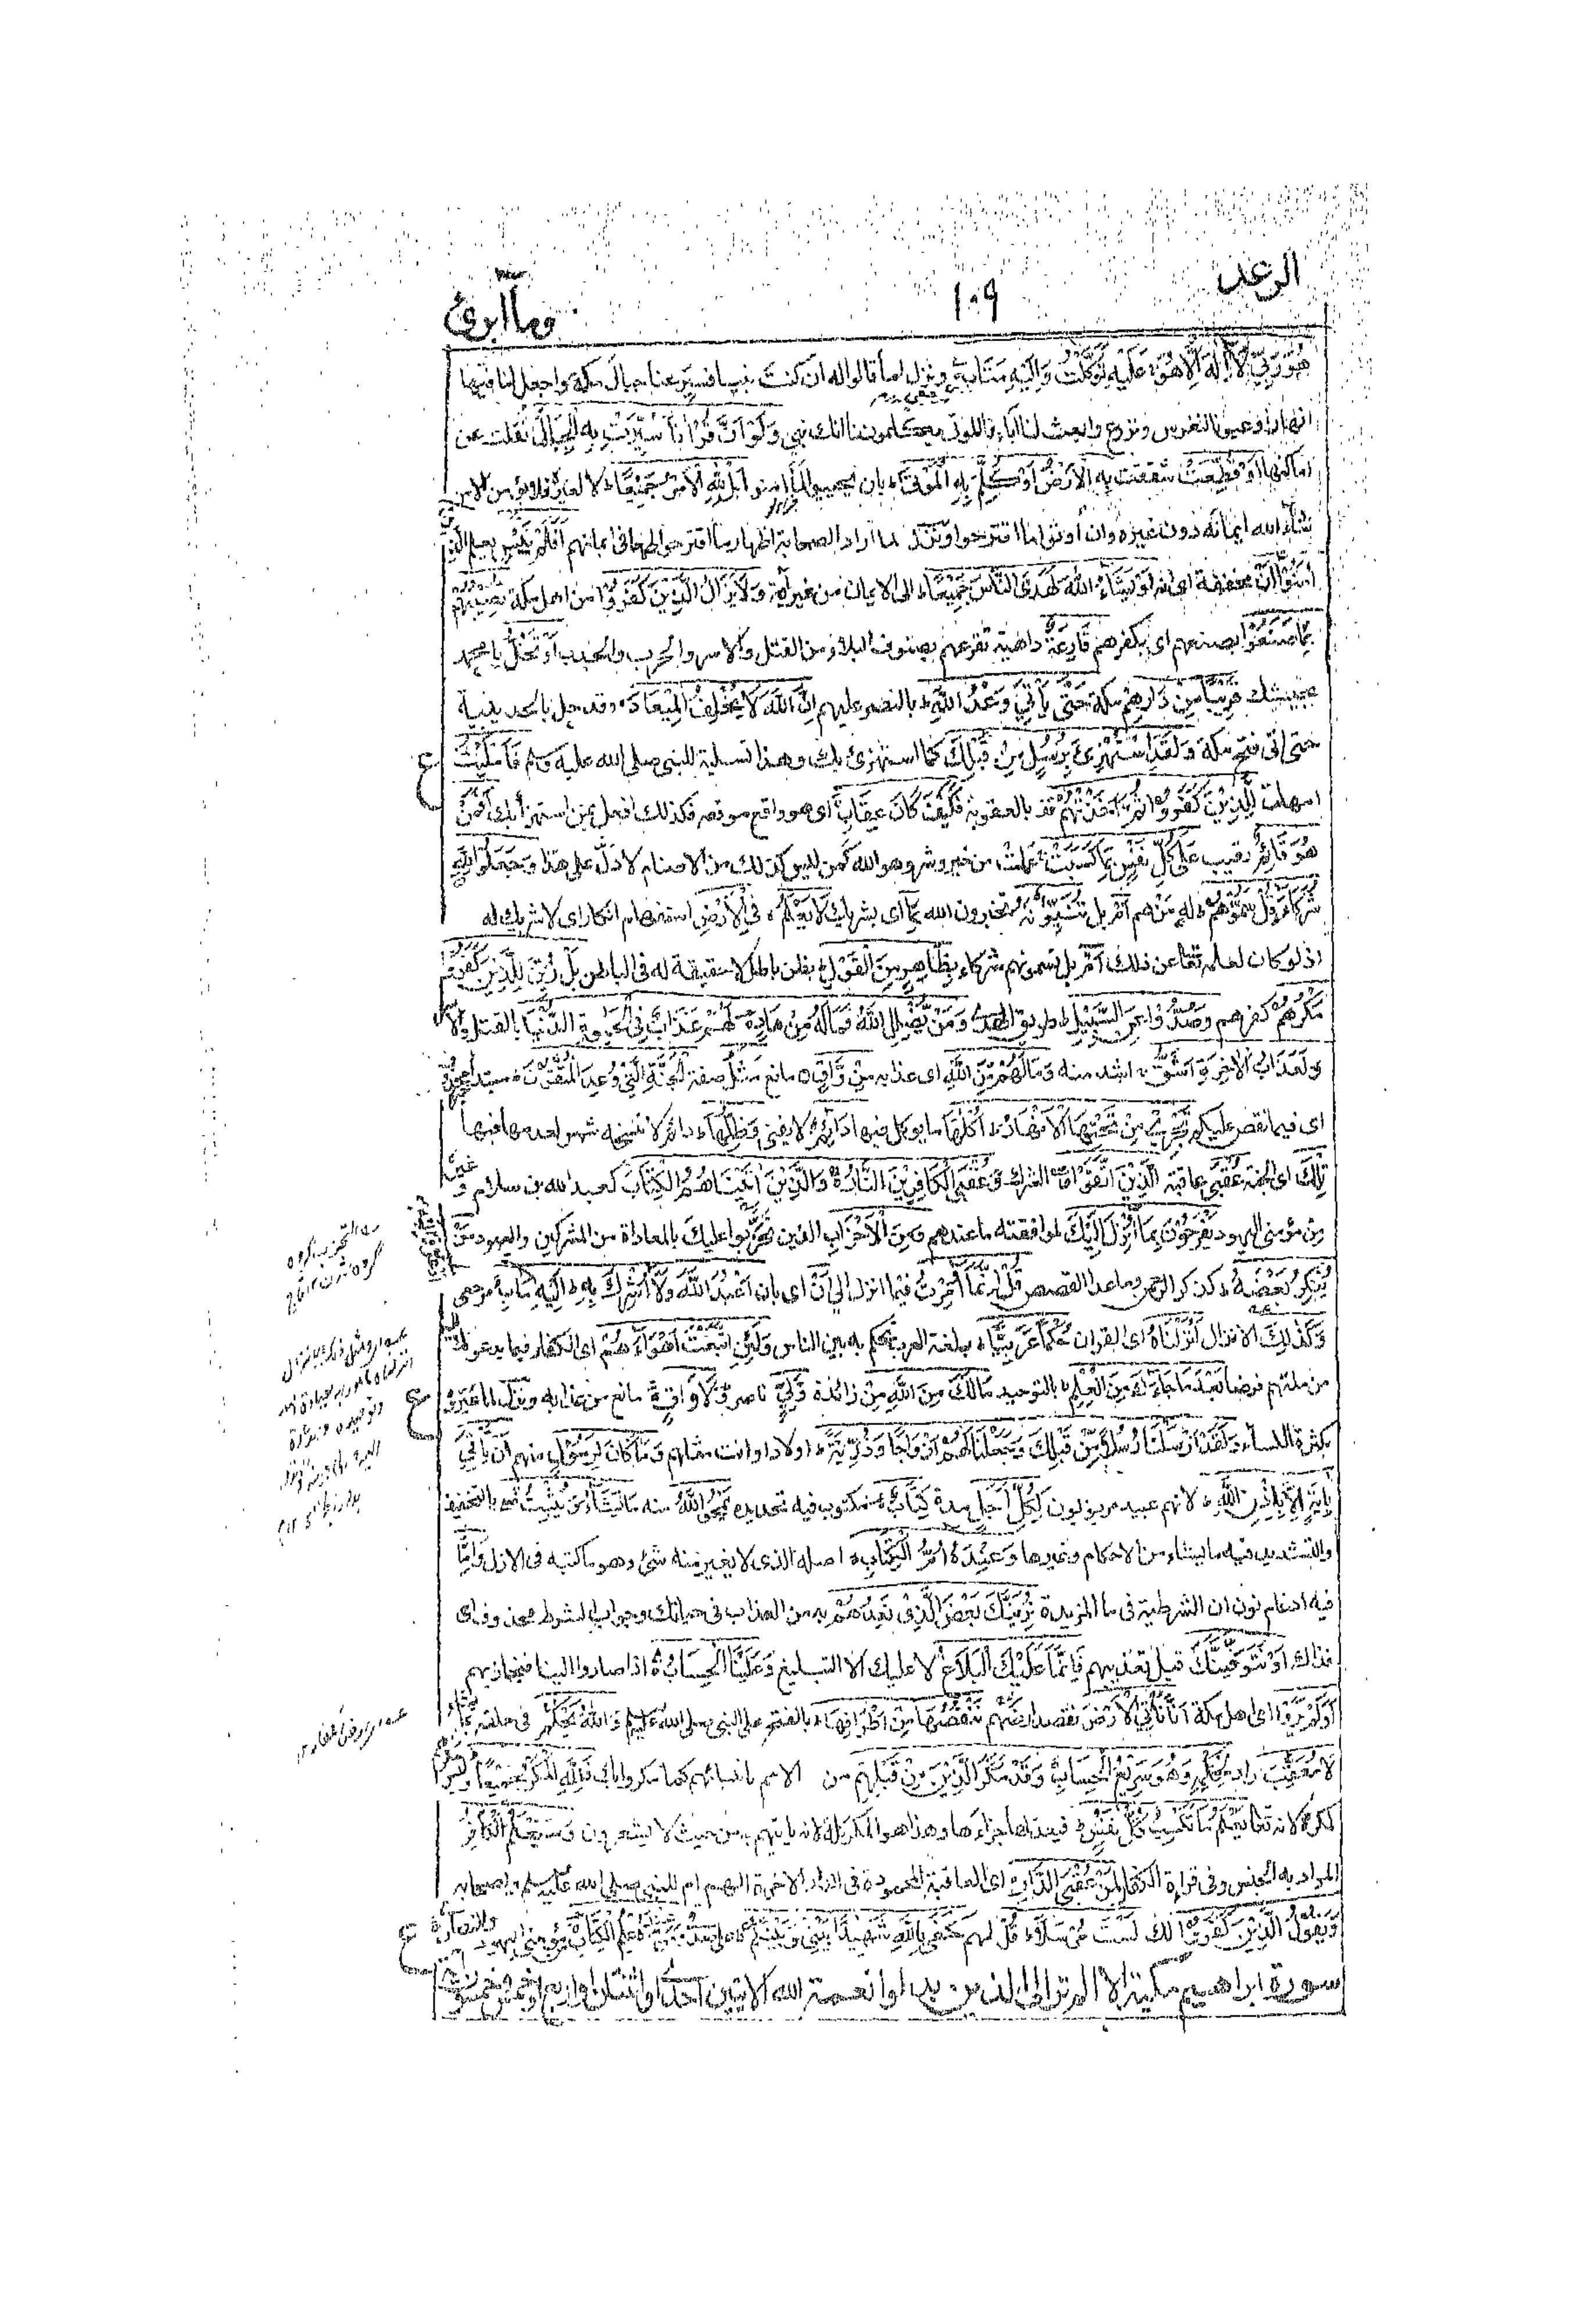 الرعد
١٠٩
وما أبرئ
هُوَ رَبِّيْ لَآ اِلٰهَ اِلَّا هُوَ ۚ عَلَيْهِ تَوَكَّلْتُ وَاِلَيْهِ مَتَابِ ونزل لما قالوا له ان كنت نبيا فسير عنا جبال مكة واجعل لنا فيها
انهارا وعيونا لنغرس ونزرع وابعث لنا آباءنا الموتى يكلمونا انك نبي وَلَوْ اَنَّ قُرْاٰنًا سُيِّرَتْ بِهِ الْجِبَالُ نقلت عن
اماكنها اَوْ قُطِّعَتْ شققت بِهِ الْاَرْضُ اَوْ كُلِّمَ بِهِ الْمَوْتٰى ۭ بان يحيوا لما امنوا بَلْ لِّلّٰهِ الْاَمْرُ جَمِيْعًا ۭ لا لغيره فلا يؤمن الا من
شاء الله ايمانه دون غيره وان أوتوا ما اقترحوا ونزل لما اراد الصحابة اظهار ما اقترحوا طمعا في ايمانهم اَفَلَمْ يَايْـــَٔـسِ يعلم الَّذِيْنَ
اٰمَنُوْٓا اَنْ مخففة اى انه لَّوْ يَشَاۗءُ اللّٰهُ لَهَدَى النَّاسَ جَمِيْعًا ۭ الى الايمان من غير آية وَلَا يَزَالُ الَّذِيْنَ كَفَرُوْا من اهل مكة تُصِيْبُهُمْ
بِمَا صَنَعُوْا بصنعهم اى بكفرهم قَارِعَةٌ داهية تقرعهم بصنوف البلاء من القتل والاسر والحرب والجدب اَوْ تَحُلُّ يا محمد
بجيشك قَرِيْبًا مِّنْ دَارِهِمْ مكة حَتّٰى يَاْتِيَ وَعْدُ اللّٰهِ ۭ بالنصر عليهم اِنَّ اللّٰهَ لَا يُخْلِفُ الْمِيْعَادَ وقد حل بالحديبية
حتى اتى فتح مكة وَلَقَدِ اسْتُهْزِئَ بِرُسُلٍ مِّنْ قَبْلِكَ كما استهزئ بك وهذا تسلية للنبي صلى الله عليه وسلم فَاَمْلَيْتُ
امهلت لِلَّذِيْنَ كَفَرُوْا ثُمَّ اَخَذْتُهُمْ بالعقوبة فَكَيْفَ كَانَ عِقَابِ اى هو واقع موقعه فكذلك افعل بمن استهزأ بك اَفَمَنْ
هُوَ قَاۗىِٕمٌ رقيب عَلٰي كُلِّ نَفْسٍۢ بِمَا كَسَبَتْ ۚ عملت من خير وشر وهو الله كمن ليس كذلك من الاصنام لا دل على هذا وَجَعَلُوْا لِلّٰهِ
شُرَكَاۗءَ ۭ قُلْ سَمُّوْهُمْ ۭ له من هم اَمْ بل تُنَبِّـــــُٔـوْنَهٗ تخبرون الله بِمَا اى بشريك لَا يَعْلَمُ فِي الْاَرْضِ استفهام انكار اى لا شريك له
اذ لو كان لعلمه تعالى عن ذلك اَمْ بل تسمونهم شركاء بِظَاهِرٍ مِّنَ الْقَوْلِ ۭ بظن باطل لا حقيقة له في الباطن بَلْ زُيِّنَ لِلَّذِيْنَ كَفَرُوْا
مَكْرُهُمْ كفرهم وَصُدُّوْا عَنِ السَّبِيْلِ ۭ طريق الهدى وَمَنْ يُّضْلِلِ اللّٰهُ فَمَا لَهٗ مِنْ هَادٍ لَهُمْ عَذَابٌ فِي الْحَيٰوةِ الدُّنْيَا بالقتل والاسر
وَلَعَذَابُ الْاٰخِرَةِ اَشَقُّ ۚ اشد منه وَمَا لَهُمْ مِّنَ اللّٰهِ اى عذابه مِنْ وَّاقٍ مانع مَثَلُ صفة الْجَنَّةِ الَّتِيْ وُعِدَ الْمُتَّقُوْنَ ۭ مبتدأ خبره محذوف
اى فيما نقص عليكم تَجْرِيْ مِنْ تَحْتِهَا الْاَنْهٰرُ ۭ اُكُلُهَا ما يؤكل فيها دَاۗىِٕمٌ لا يفنى وَّظِلُّهَا ۭ دائم لا تنسخه شمس لعدمها فيها
تِلْكَ اى الجنة عُقْبَى عاقبة الَّذِيْنَ اتَّقَوْا الشرك وَّعُقْبَى الْكٰفِرِيْنَ النَّارُ وَالَّذِيْنَ اٰتَيْنٰهُمُ الْكِتٰبَ كعبد الله بن سلام وغيره
من مؤمني اليهود يَفْرَحُوْنَ بِمَآ اُنْزِلَ اِلَيْكَ لموافقته ما عندهم وَمِنَ الْاَحْزَابِ الذين تحزبوا عليك بالمعاداة من المشركين واليهود مَنْ
يُّنْكِرُ بَعْضَهٗ ۭ كذكر الرحمن وما عدا القصص قُلْ اِنَّمَآ اُمِرْتُ فيما انزل الي اَنْ اى بان اَعْبُدَ اللّٰهَ وَلَآ اُشْرِكَ بِهٖ ۭ اِلَيْهِ مَاٰبِ مرجعي
وَكَذٰلِكَ الانزال اَنْزَلْنٰهُ اى القران حُكْمًا عَرَبِيًّا ۭ بلغة العرب تحكم به بين الناس وَلَىِٕنِ اتَّبَعْتَ اَهْوَاۗءَهُمْ اى الكفار فيما يدعونك اليه
من ملتهم فرضا بَعْدَ مَا جَاۗءَكَ مِنَ الْعِلْمِ بالتوحيد مَا لَكَ مِنَ اللّٰهِ مِنْ زائدة وَّلِيٍّ ناصر وَّلَا وَاقٍ مانع من عذابه ونزل لما عيروه
بكثرة النساء وَلَقَدْ اَرْسَلْنَا رُسُلًا مِّنْ قَبْلِكَ وَجَعَلْنَا لَهُمْ اَزْوَاجًا وَّذُرِّيَّةً ۭ اولادا وانت مثلهم وَمَا كَانَ لِرَسُوْلٍ منهم اَنْ يَّاْتِيَ
بِاٰيَةٍ اِلَّا بِاِذْنِ اللّٰهِ ۭ لانهم عبيد مربوبون لِكُلِّ اَجَلٍ مدة كِتَابٌ مكتوب فيه تحديده يَمْحُوا اللّٰهُ منه مَا يَشَاۗءُ وَيُثْبِتُ بالتخفيف
والتشديد فيه ما يشاء من الاحكام وغيرها وَعِنْدَهٗٓ اُمُّ الْكِتٰبِ اصله الذى لا يغير منه شئ وهو ما كتبه في الازل وَاِنْ مَّا
فيه ادغام نون ان الشرطية في ما المزيدة نُرِيَنَّكَ بَعْضَ الَّذِيْ نَعِدُهُمْ به من العذاب في حياتك وجواب الشرط محذوف اى
فذاك اَوْ نَتَوَفَّيَنَّكَ قبل تعذيبهم فَاِنَّمَا عَلَيْكَ الْبَلٰغُ لا عليك الا التبليغ وَعَلَيْنَا الْحِسَابُ اذا صاروا الينا فنجازيهم
اَوَلَمْ يَرَوْا اى اهل مكة اَنَّا نَاْتِي الْاَرْضَ نقصد ارضهم نَنْقُصُهَا مِنْ اَطْرَافِهَا ۭ بالفتح على النبي صلى الله عليه وسلم وَاللّٰهُ يَحْكُمُ في خلقه بما يشاء
لَا مُعَقِّبَ راد لِحُكْمِهٖ ۭ وَهُوَ سَرِيْعُ الْحِسَابِ وَقَدْ مَكَرَ الَّذِيْنَ مِنْ قَبْلِهِمْ من الامم بانبيائهم كما مكروا بك فَلِلّٰهِ الْمَكْرُ جَمِيْعًا ۭ وليس مكرهم
كمكره لانه تعالى يَعْلَمُ مَا تَكْسِبُ كُلُّ نَفْسٍ ۭ فيعد لها جزاءها وهذا هو المكر كله لانه ياتيهم به من حيث لا يشعرون وَسَيَعْلَمُ الْكٰفِرُ
المراد به الجنس وفي قراءة الكفار لِمَنْ عُقْبَى الدَّارِ اى العاقبة المحمودة في الدار الاخرة الهم ام للنبي صلى الله عليه وسلم واصحابه
وَيَقُوْلُ الَّذِيْنَ كَفَرُوْا لك لَسْتَ مُرْسَلًا ۭ قُلْ لهم كَفٰى بِاللّٰهِ شَهِيْدًۢا بَيْنِيْ وَبَيْنَكُمْ على صدقي وَمَنْ عِنْدَهٗ عِلْمُ الْكِتٰبِ مؤمني اليهود والنصارى
سورة ابراهيم مكية الا الم تر الى الذين بدلوا نعمة الله الآيتين احدى او اثنتان او اربع او خمس وخمسون آية